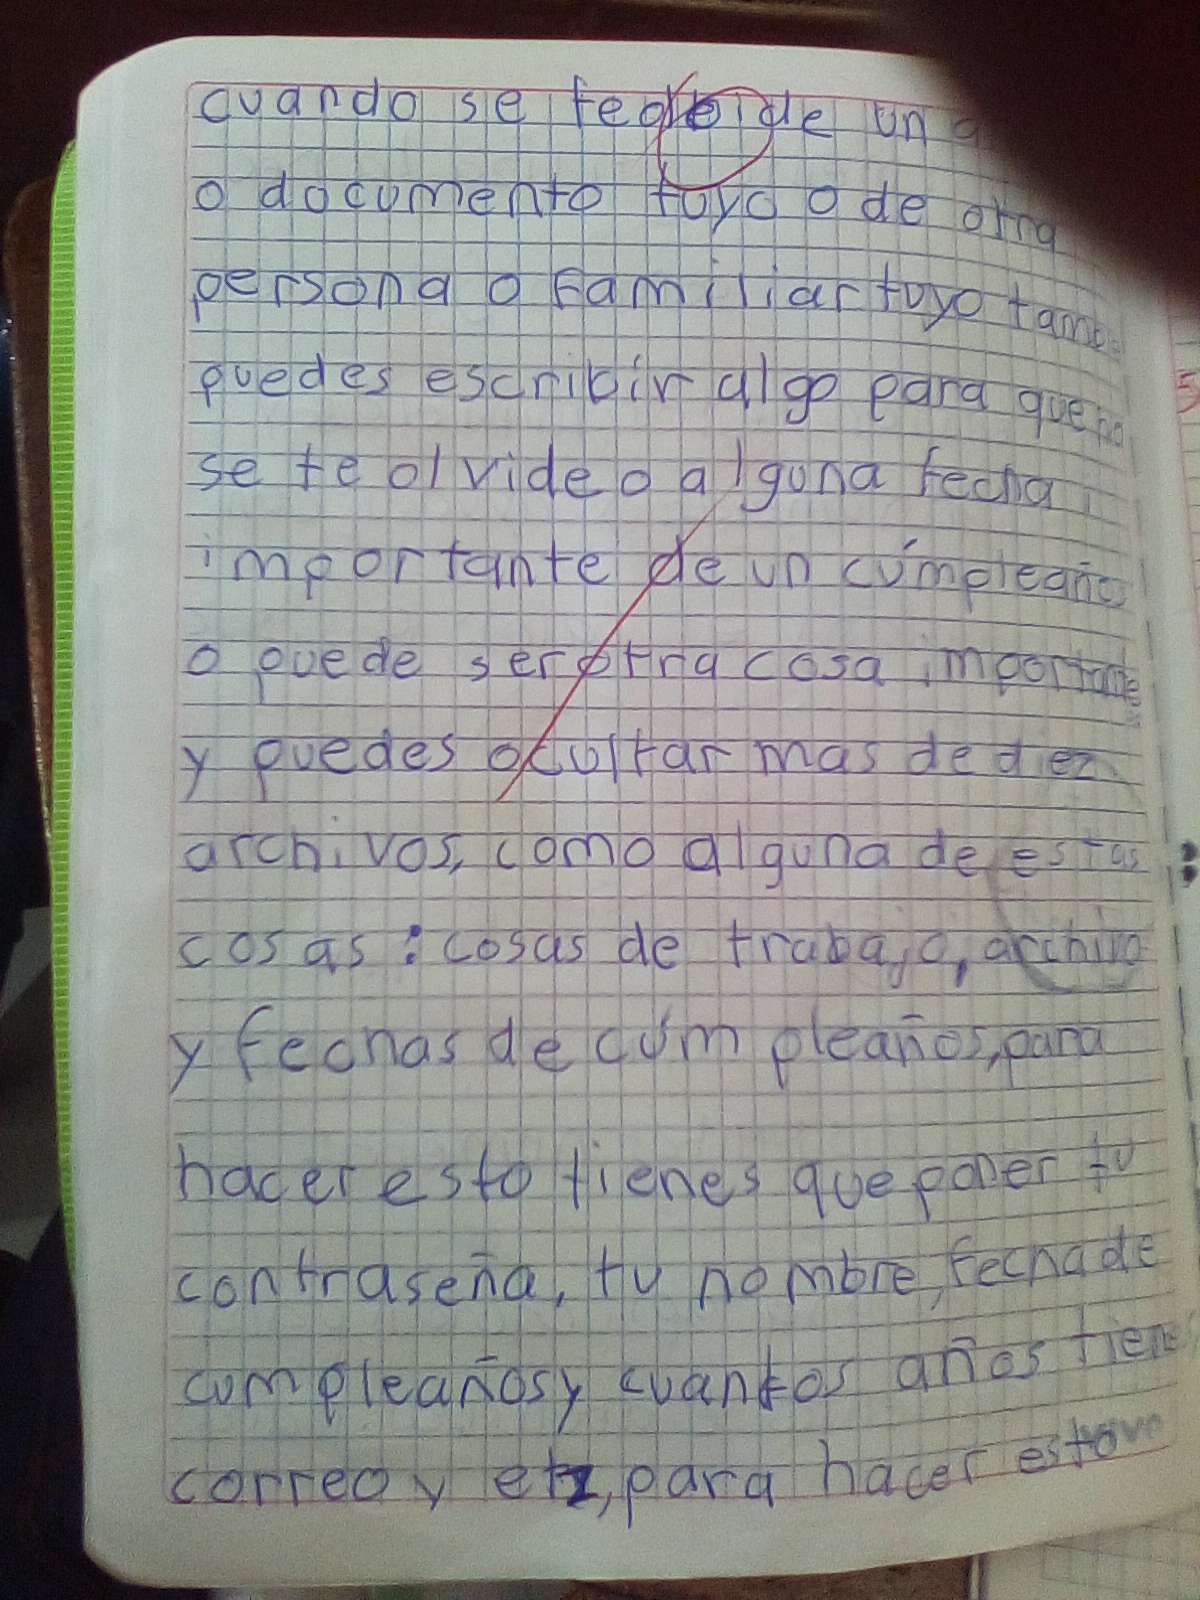 cuando se te olvide un
o documento tuyo o de otra
persona o familiar tuyo
puedes escribir algo para que no
se te olvide o alguna fecha
importante de un cúmpleaño
o puede ser otra cosa importante
y puedes ocultar mas de diez
archivos, como alguna de estas
cosas : cosas de trabajo, archivo
y fechas de cúmpleaños, para
hacer esto tienes que poner tu
contraseña, tu nombre, fecha de
cumpleaños y cuantos años tiene
correo y etz, para hacer esto
5